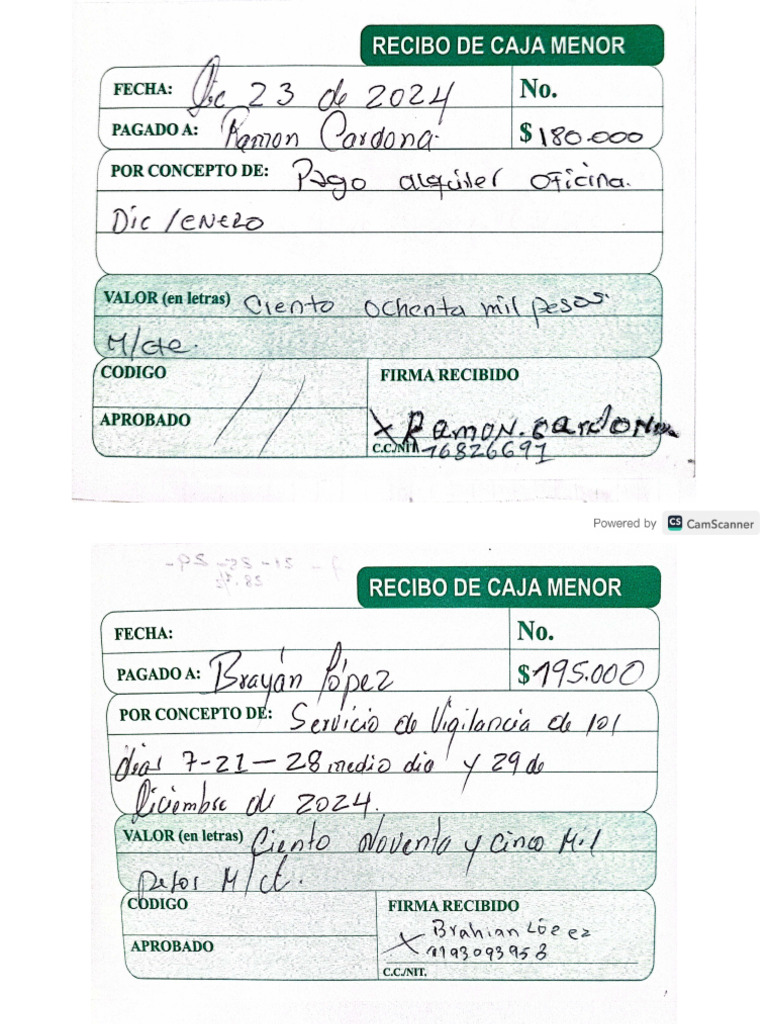 RECIBO DE CAJA MENOR
FECHA: Dic 23 de 2024 No.
PAGADO A: Ramon Cardona. $ 180.000
POR CONCEPTO DE: Pago alquiler oficina.
Dic / enero
VALOR (en letras) Ciento ochenta mil pesos
M/cte.
CODIGO FIRMA RECIBIDO
APROBADO X Ramon. Cardona
C.C./NIT. 16826691
Powered by CS CamScanner
RECIBO DE CAJA MENOR
FECHA: No.
PAGADO A: Brayán López $ 195.000
POR CONCEPTO DE: Servicio de Vigilancia de los
dias 7-21-28 medio dia y 29 de
Diciembre de 2024.
VALOR (en letras) Ciento Noventa y cinco Mil
pesos M/ct.
CODIGO FIRMA RECIBIDO
Brahian Lóeez
APROBADO X 1193093953
C.C./NIT.